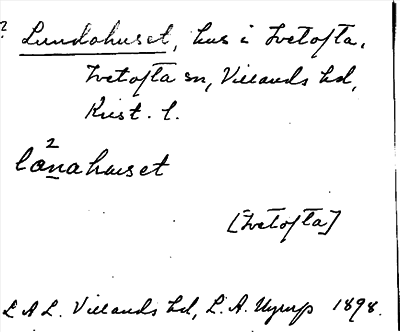 Lundahuset, hus i Ivetofta,
Ivetofta sn, Villands hd,
Krist. l.
2
lånahuset
[Ivetofta]
L A L. Villands hd, L. A. Nyrup 1898.